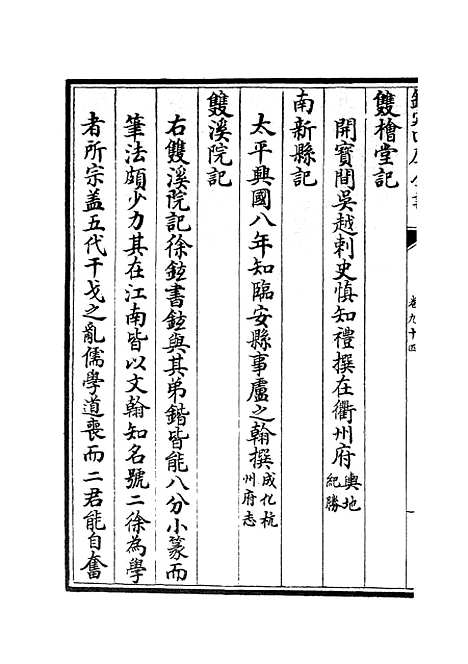 卷九十四
雙檜堂記
開寶間吳越刺史慎知禮撰在衢州府輿地紀勝
南新縣記
太平興國八年知臨安縣事盧之翰撰成化杭州府志
雙溪院記
右雙溪院記徐鉉書鉉與其弟鍇皆能八分小篆而
筆法頗少力其在江南皆以文翰知名號二徐為學
者所宗盖五代干戈之亂儒學道喪而二君能自奮